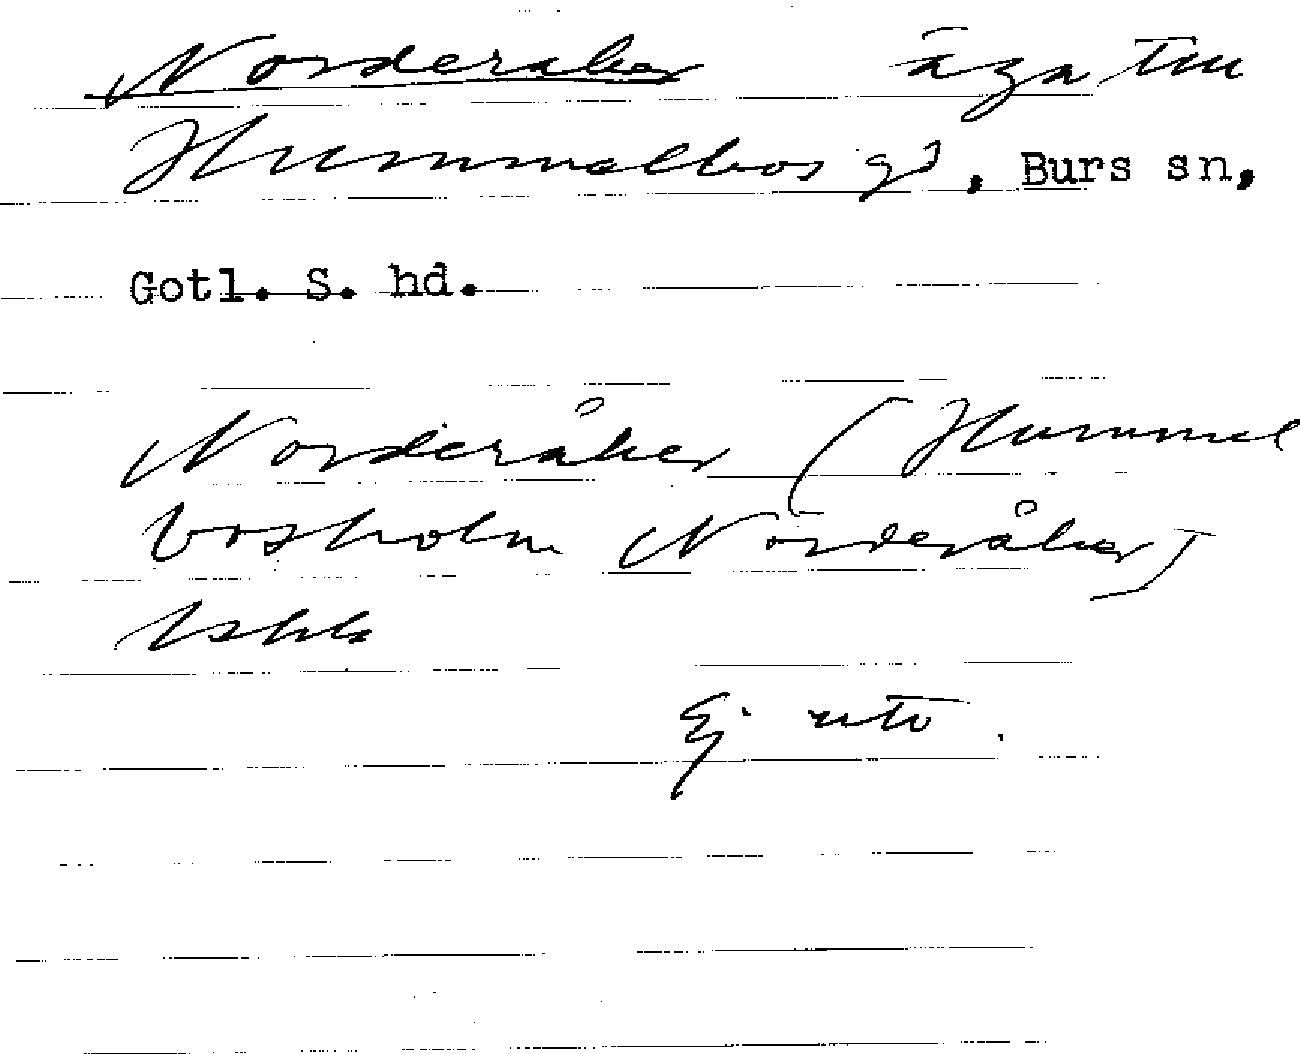 Norderåker äga tm
Hummelbos gd, Burs sn,
Gotl. S. hd.
Norderåker (Hummel
bosholm Norderåker)
Ej utb.